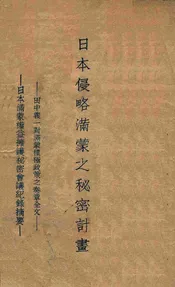 日本侵略滿蒙之秘密計畫
——田中義一對滿蒙積極政策之奏章全文——
——日本滿蒙權益擁護秘密會議紀錄摘要——